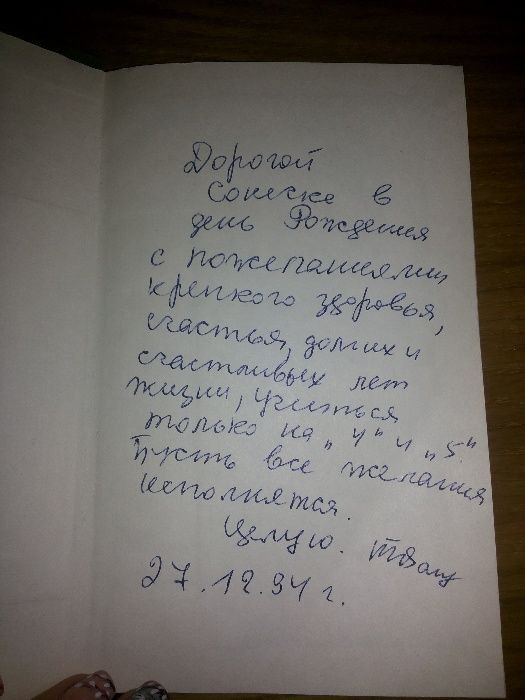 Дорогой
Сонечке в
день Рождения
с пожеланиями
крепкого здоровья,
счастья, долгих и
счастливых лет
жизни, учиться
только на „4" и „5"
Пусть все желания
исполнятся.
Целую.
27.12.94 г.